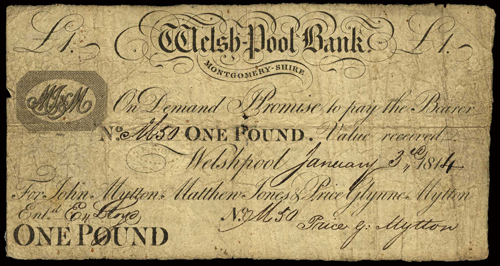 £1. Welsh-Pool Bank £1.
MONTGOMERY-SHIRE
MJ&M
On Demand I Promise to pay the Bearer
No. M50 ONE POUND. Value received
Welshpool January 3rd 1814
For John Mytton, Matthew Jones & Price Glynne Mytton
Entd. E. Lloyd No. M50
Price G. Mytton
ONE POUND